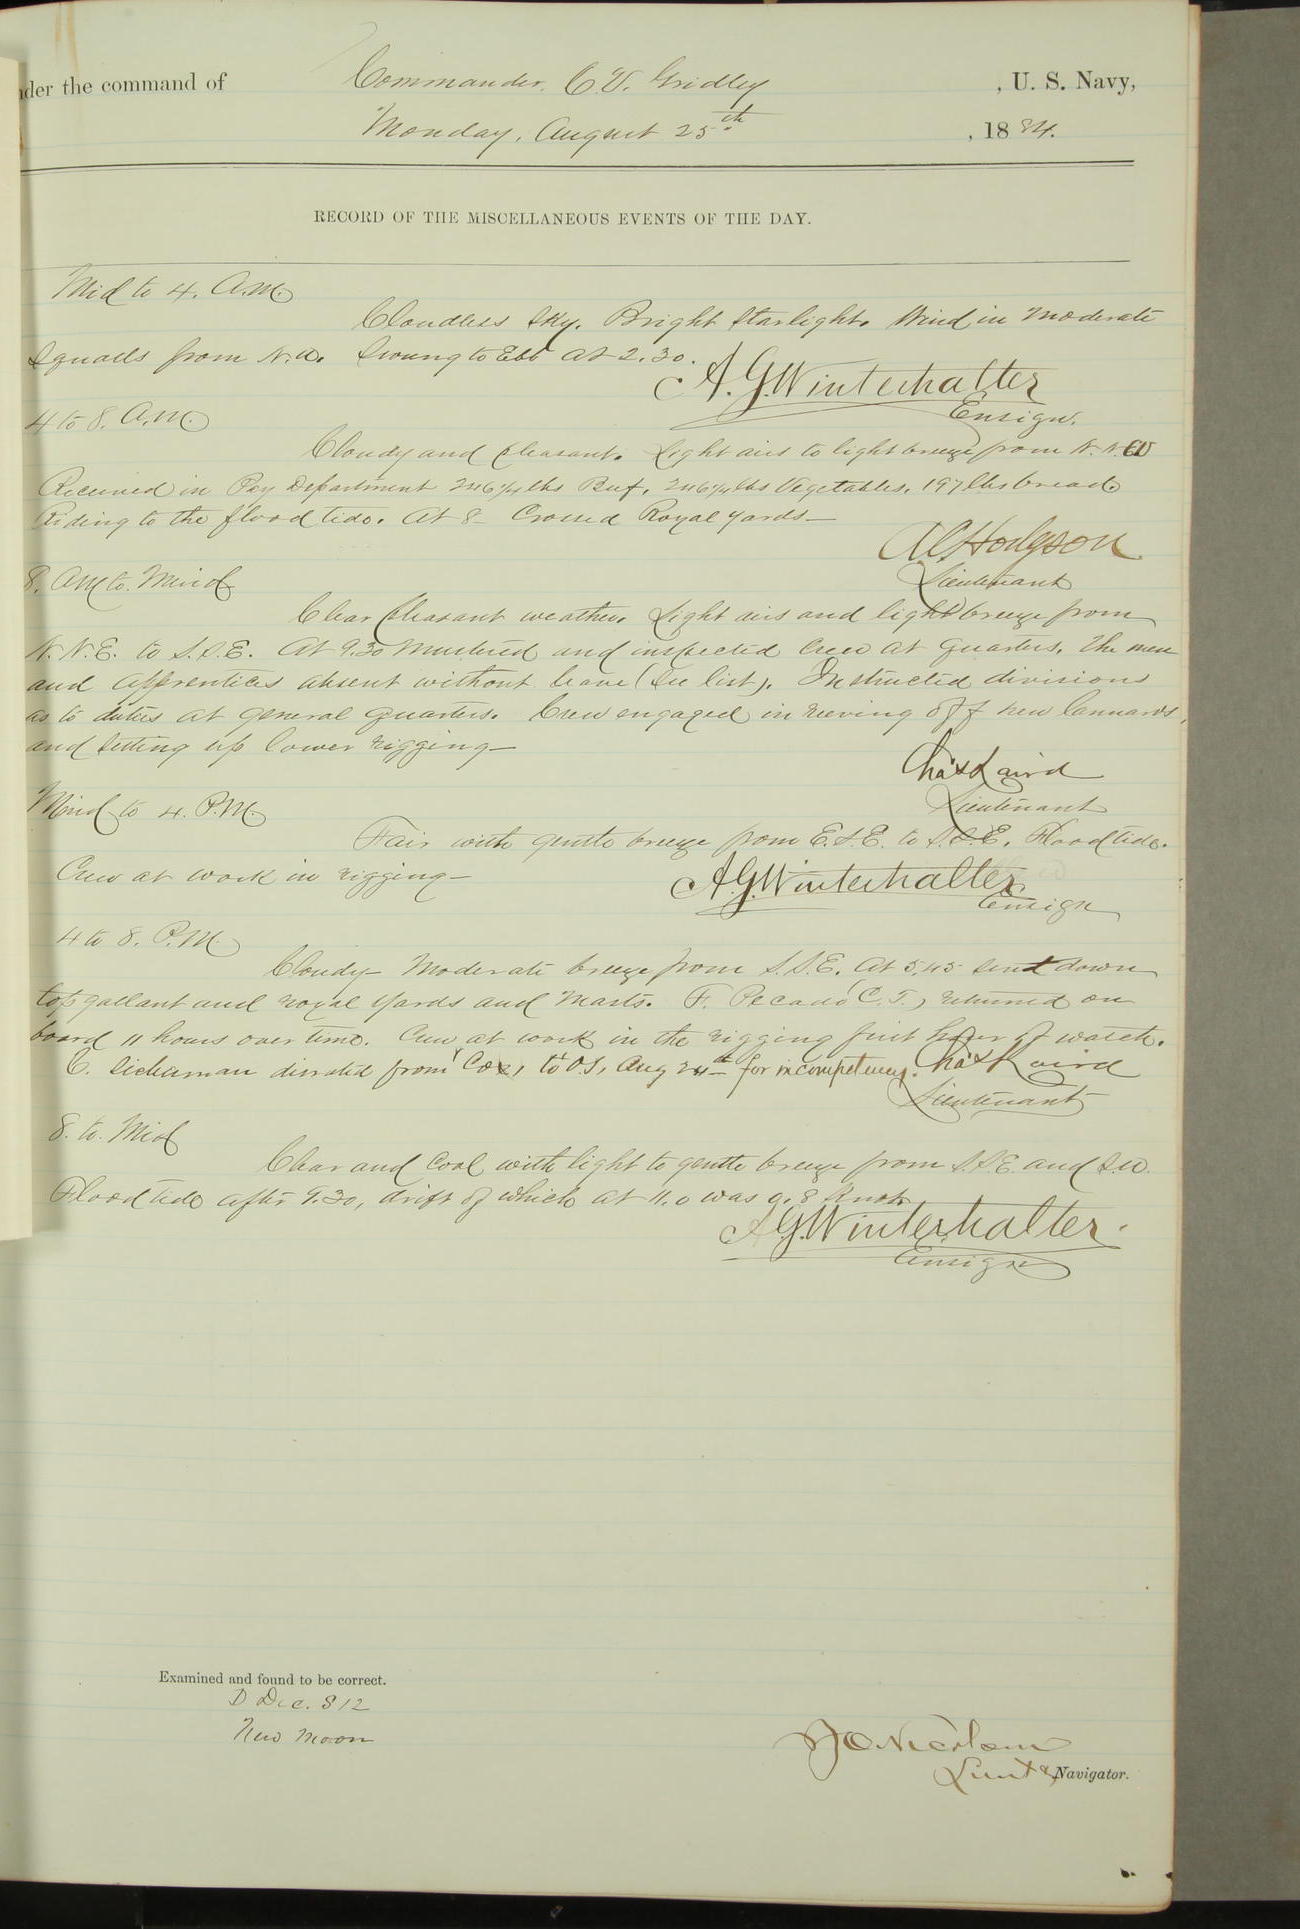 nder the command of Commander. C. V. Gridley , U. S. Navy,
Monday, August 25th. , 1884.
RECORD OF THE MISCELLANEOUS EVENTS OF THE DAY.
Mid to 4. A.M.
Cloudless sky. Bright starlight. Wind in moderate
squalls from N.W. Swung to Ebb at 2.30.
A. G. Winterhalter
Ensign.
4 to 8. A.M.
Cloudy and pleasant. Light airs to light breeze from N.N.W
Received in Pay Department 246 1/4 lbs Beef, 246 1/4 lbs Vegetables, 197 lbs bread.
Riding to the flood tide. At 8 crossed Royal yards—
A C Hodgson
Lieutenant
8. AM to. Merid
Clear pleasant weather. Light airs and light breeze from
N.N.E. to S.S.E. At 9.30 mustered and inspected crew at quarters. The men
and apprentices absent without leave (See list). Instructed divisions
as to duties at general quarters. Crew engaged in reeving off new lannards,
and setting up lower rigging—
Chas Laird
Lieutenant
Merid to 4. P.M.
Fair with gentle breeze from E.S.E. to S.S.E. Flood tide.
Crew at work in rigging—
A. G. Winterhalter
Ensign
4 to 8. P.M.
Cloudy— Moderate breeze from S.S.E. At 5.45 sent down
top gallant and royal yards and masts. F. (C. T.) returned on
board 11 hours over time. Crew at work in the rigging first hour of watch.
C. disrated from Cox, to O.S, Aug 24th for incompetency. Chas Laird
Lieutenant
8. to. Mid
Clear and cool with light to gentle breeze from S.S.E. and S.W.
Flood tide after 9.30, drift of which at 11.0 was 0.8 knots
A. G. Winterhalter.
Ensign
Examined and found to be correct.
D Dec. 812
New Moon
Lieut & Navigator.